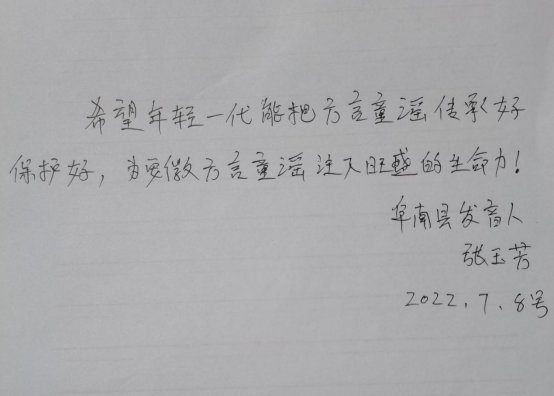 希望年轻一代能把方言童谣传承好
保护好，为安徽方言童谣注入旺盛的生命力！
阜南县发音人
张玉芳
2022.7.8号